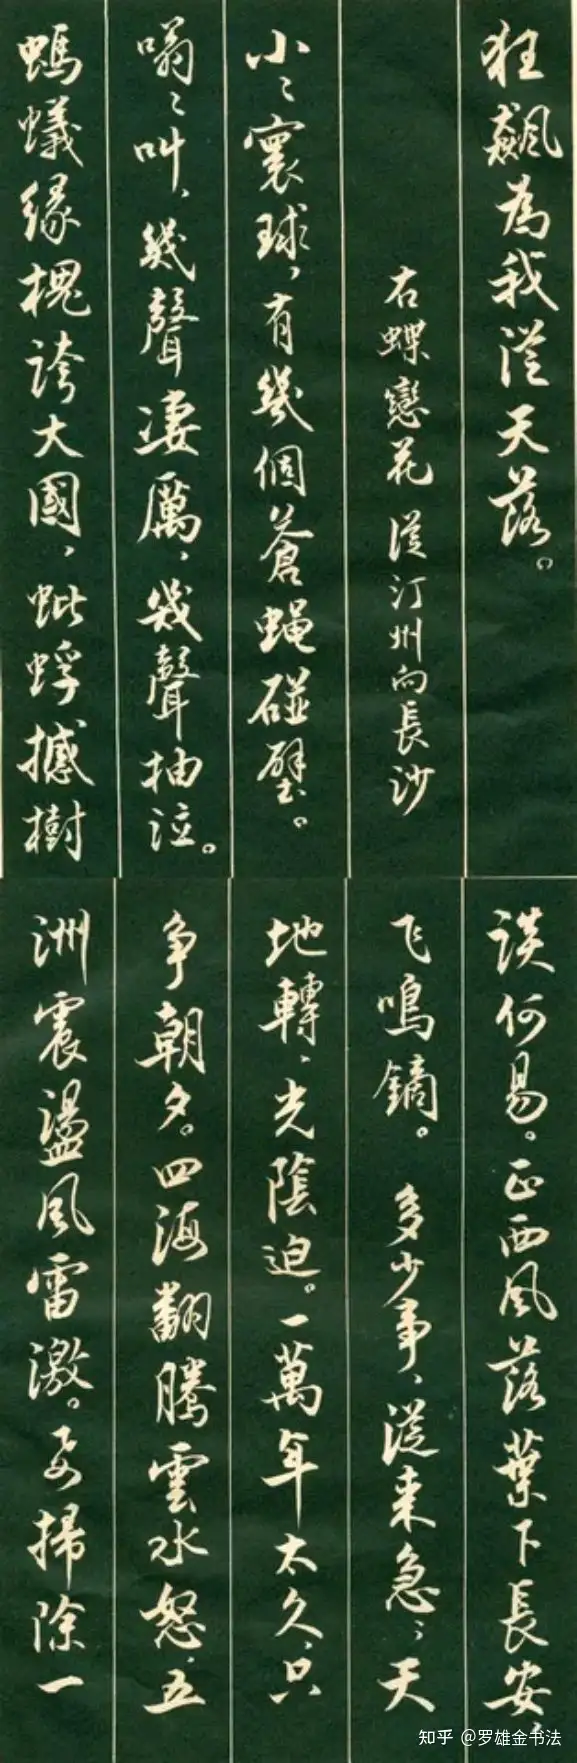 狂飆為我從天落。
右蝶戀花 從汀州向長沙
小〻寰球、有幾個蒼蠅碰壁。
嗡〻叫、幾聲凄厲、幾聲抽泣。
螞蟻緣槐誇大國、蚍蜉撼樹
談何易。正西风落葉下長安、
飞鳴鏑。 多少事、從来急〻天
地轉、光陰迫。一萬年太久、只
争朝夕。四海翻騰雲水怒、五
洲震盪风雷激。要掃除一
知乎 @罗雄金书法